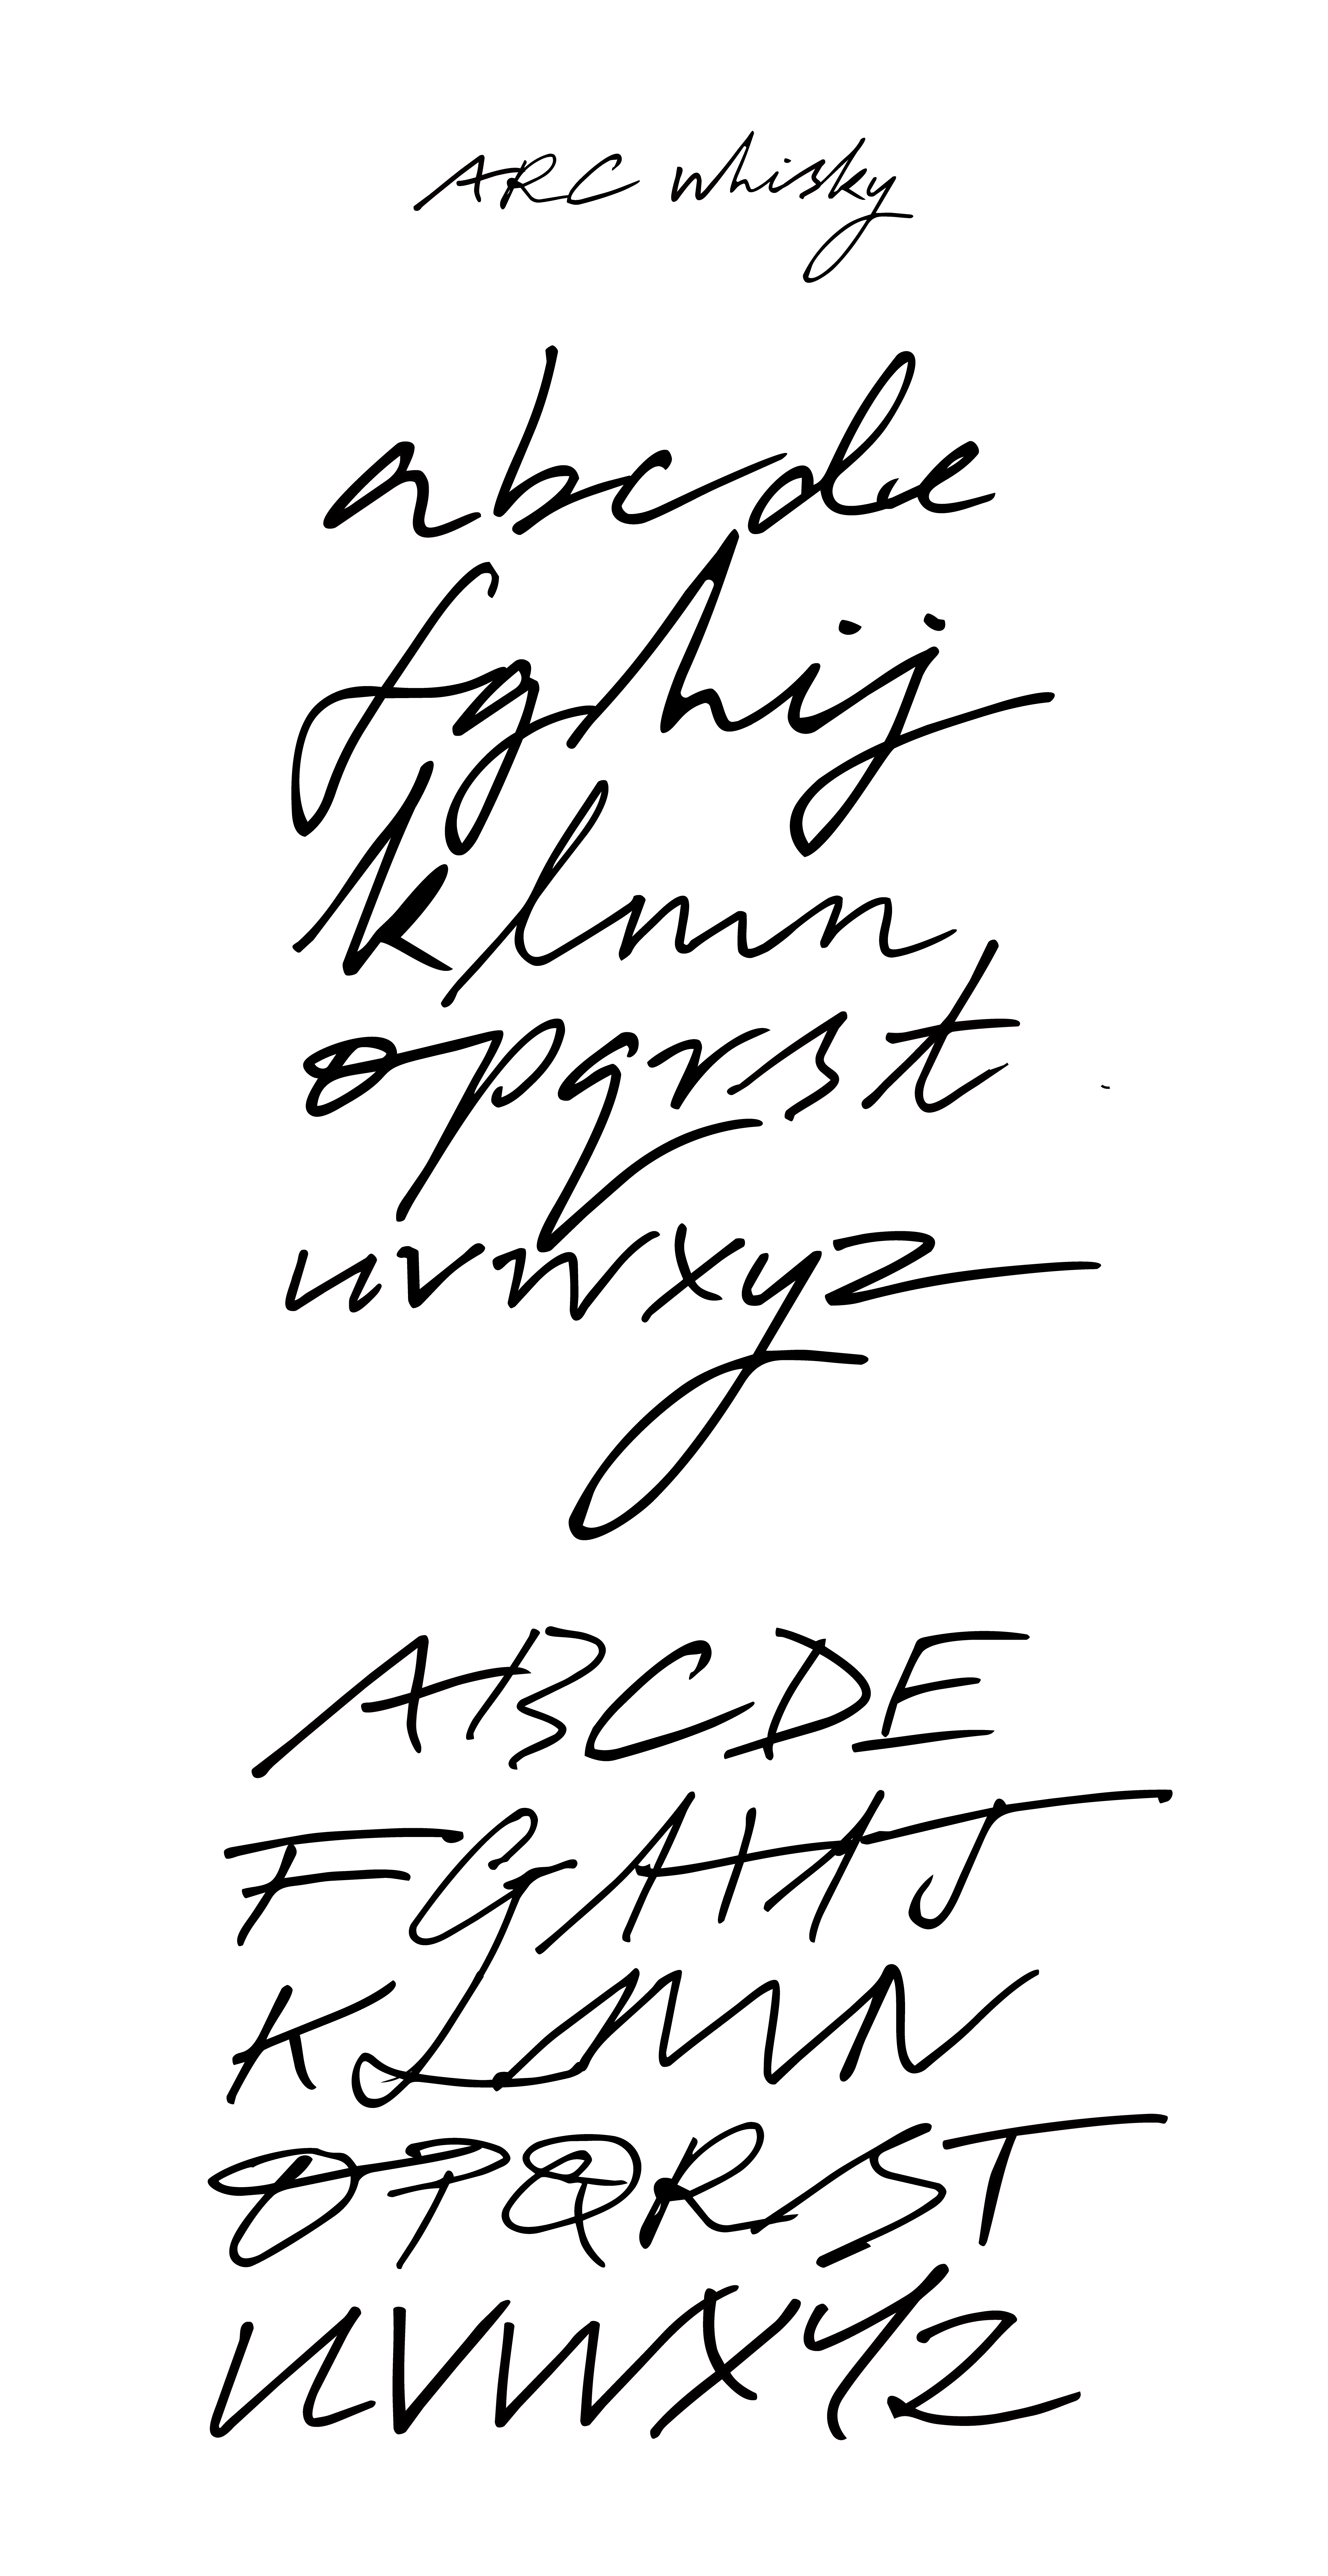 ARC whisky
abcde
fghij
klmn
opqrst
uvwxyz
ABCDE
FGHIJ
KLMN
OPQRST
UVWXYZ